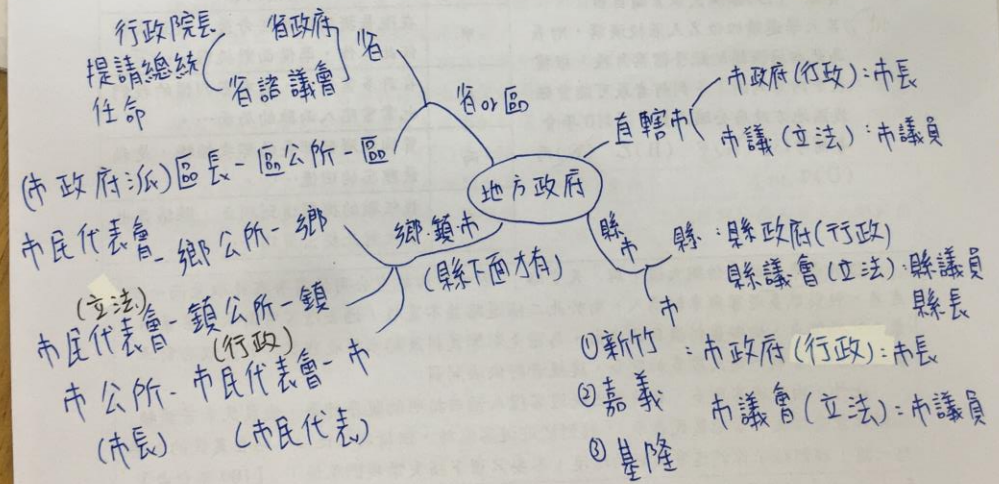 行政院長 省政府
提請總統 省諮議會 省
任命
省or區
(市政府派)區長-區公所-區
市民代表會-鄉公所-鄉
(立法)
市民代表會 鎮公所-鎮
(行政)
市公所-市民代表會 市
(市長) (市民代表)
鄉.鎮.市
(縣下面才有)
地方政府
直轄市
市政府(行政):市長
市議(立法):市議員
縣市
縣:縣政府(行政)
縣議會(立法):縣議員
縣長
市
①新竹:市政府(行政):市長
②嘉義 市議會(立法):市議員
③基隆